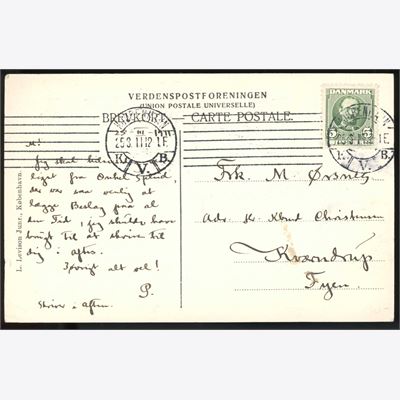 VERDENSPOSTFORENINGEN
(UNION POSTALE UNIVERSELLE)
BREVKORT. — CARTE POSTALE.
DANMARK
5 5
KJØBENHAVN
25.3.11.12-1E
K. B.
V.
25.3.11.12-1E
K. B.
V.
L. Levison Junr., København.
M!
Jeg skal hilse
liget fra Onkel
der var saa venlig at
lægge Beslag paa al
den Tid, jeg skulde have
brugt til at skrive til
dig i aftes.
Iøvrigt alt vel!
P.
Skriv i aften.
Frk M. Ørsnes
Adr. Hr. Knud Christensen
Kværndrup
Fyen.